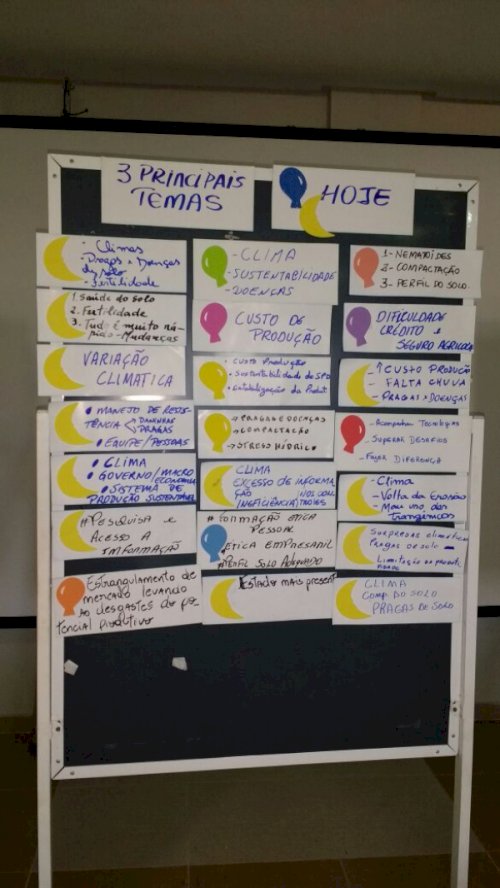 3 PRINCIPAIS
TEMAS
HOJE
- Climas
- Pragas e Doenças
do solo
- Fertilidade
- CLIMA
- SUSTENTABILIDADE
- DOENÇAS
1- NEMATÓIDES
2- COMPACTAÇÃO
3- PERFIL DO SOLO
1. Saúde do solo
2. Fertilidade
3. Tudo é muito rá-
pido - Mudanças
CUSTO DE
PRODUÇÃO
DIFICULDADE
CRÉDITO e
SEGURO AGRÍCOLA
VARIAÇÃO
CLIMATICA
• Custo Produção
• Sustentabilidade do SPD
• Estabilização da Produt
- ↑ CUSTO PRODUÇÃO
- FALTA CHUVA
- PRAGAS > DOENÇAS
• MANEJO DE RESIS-
TÊNCIA DANINHAS
PRAGAS
• EQUIPE/PESSOAS
→ PRAGAS E DOENÇAS
→ COMPACTAÇÃO
→ STRESS HÍDRICO
- Acompanhar Tecnologias
- SUPERAR DESAFIOS
- Fazer DIFERENÇA
• CLIMA
• GOVERNO/MACRO ECONOMIA
• SISTEMA DE
PRODUÇÃO SUSTENTÁVEL
CLIMA
EXCESSO DE INFORMA
ÇÃO
(INEFICIÊNCIA)
- Clima
- Volta da Erosão
- Mau uso dos
Transgênicos
# Pesquisa e
Acesso A
INFORMAÇÃO
# Formação ética
PESSOAL
# ÉTICA EMPRESARIL
# Perfil Solo Adequado
SURPRESAS climáticas
PRAGAS de solo
Limitação da produti
Estrangulamento de
mercado levando
ao desgastes do po-
tencial produtivo
Estado mais presente
CLIMA
COMP. DO SOLO
PRAGAS DE SOLO